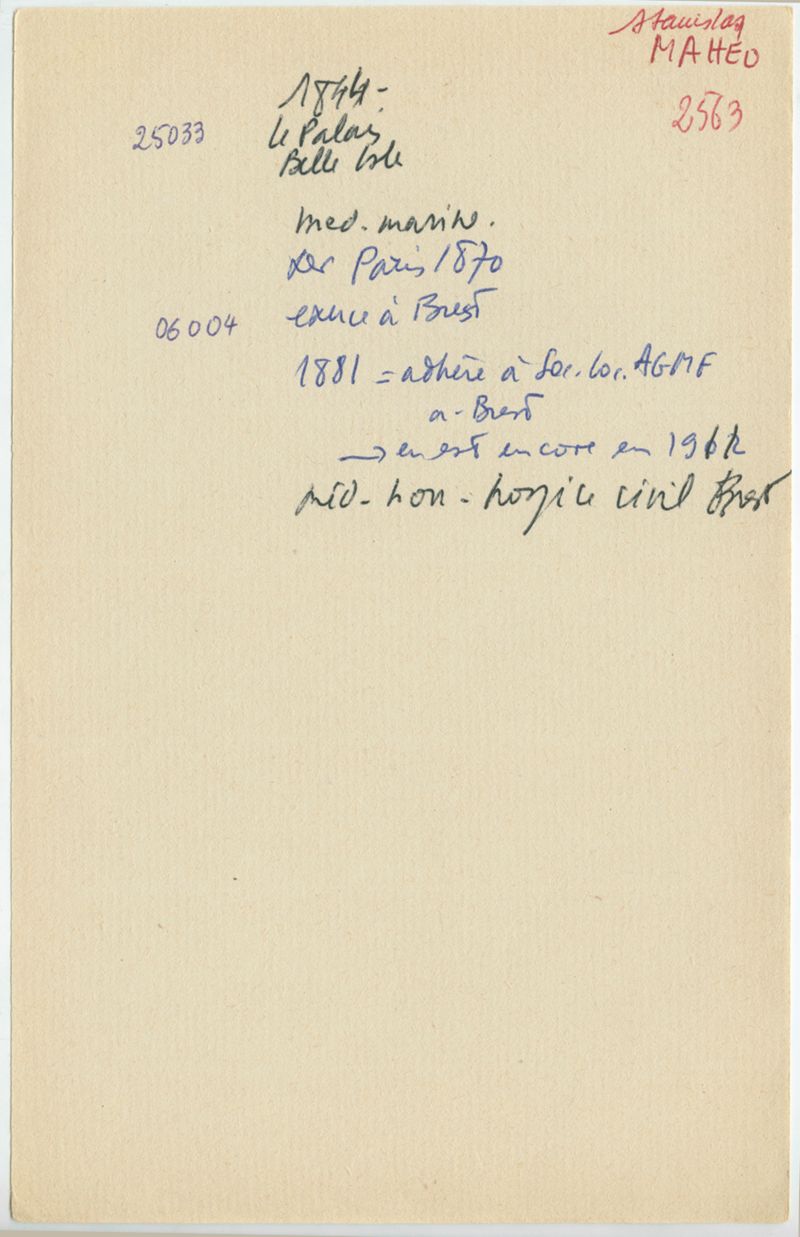 Stanislas
MAHEO
2563
1844-
25033 Le Palais
Belle Isle
med. marine.
Der Paris 1870
06004 exerce à Brest
1881 = adhère à Soc. loc. AGMF
a - Brest
→ en est encore en
méd - hon - hospice civil Brest